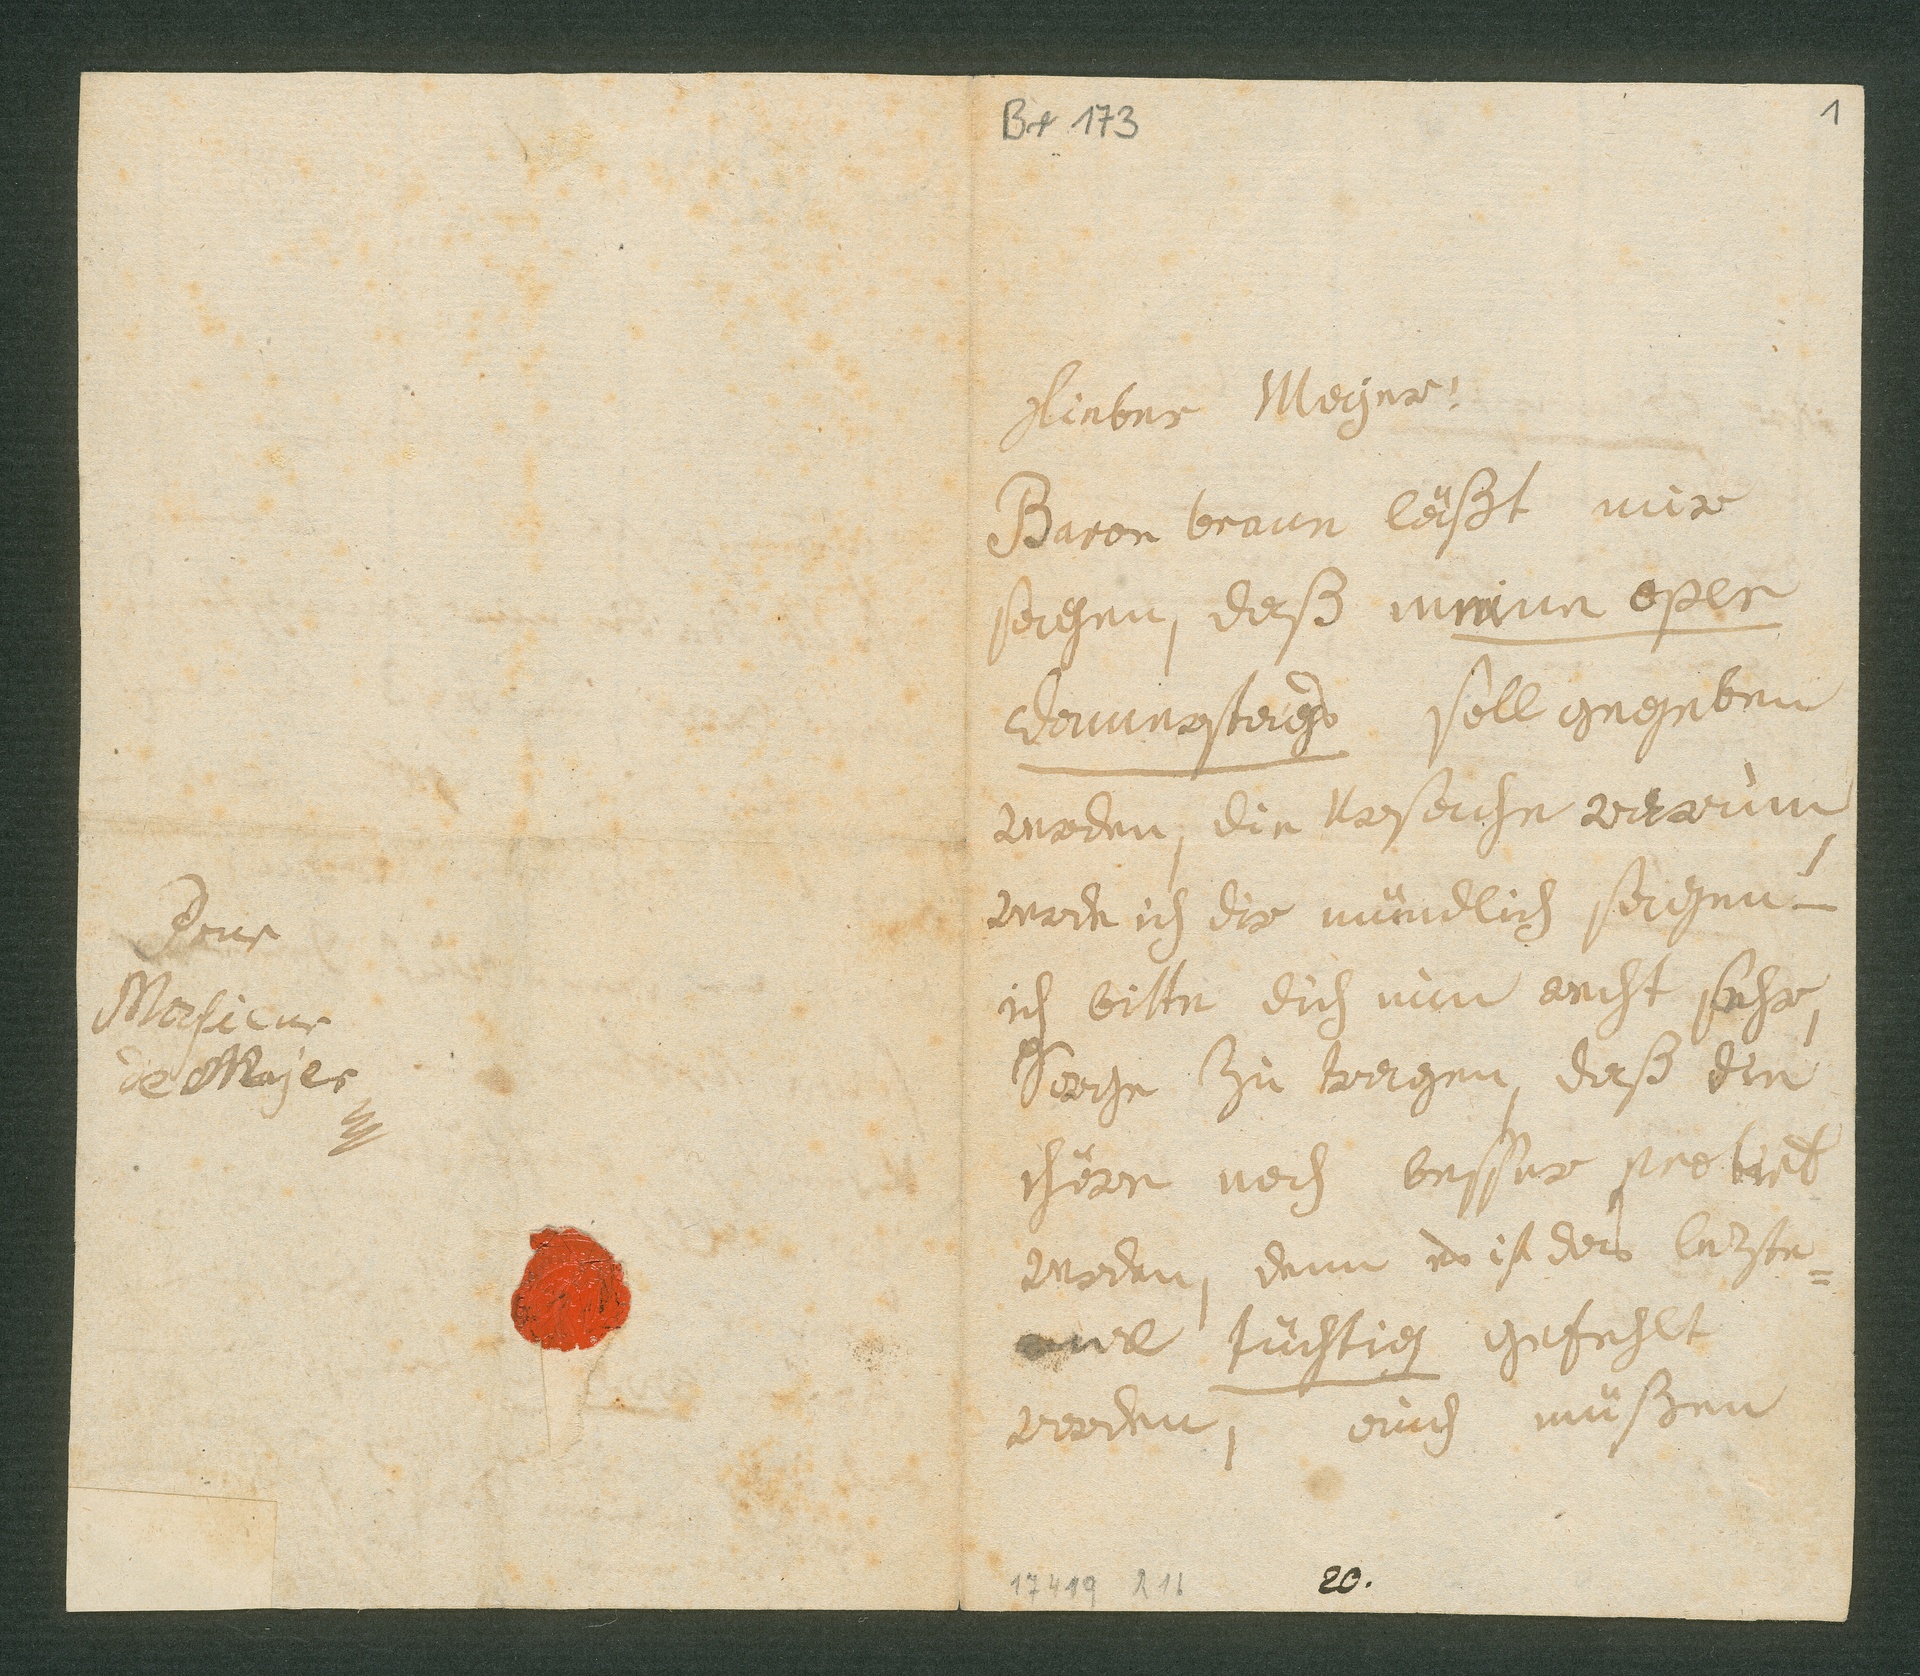 Pour
Monsieur
de Majer
Br 173
1
Lieber Meyer!
Baron braun läßt mir
sagen, daß meine oper
donnerstags soll gegeben
werden, die Ursache warum
werde ich dir mündlich sagen –
ich bitte dich nun recht sehr,
Sorge zu tragen, daß die
chöre noch besser probirt
werden, denn es ist das lezte=
mal tüchtig gefehlt
worden, auch müßen
17419 216
20.